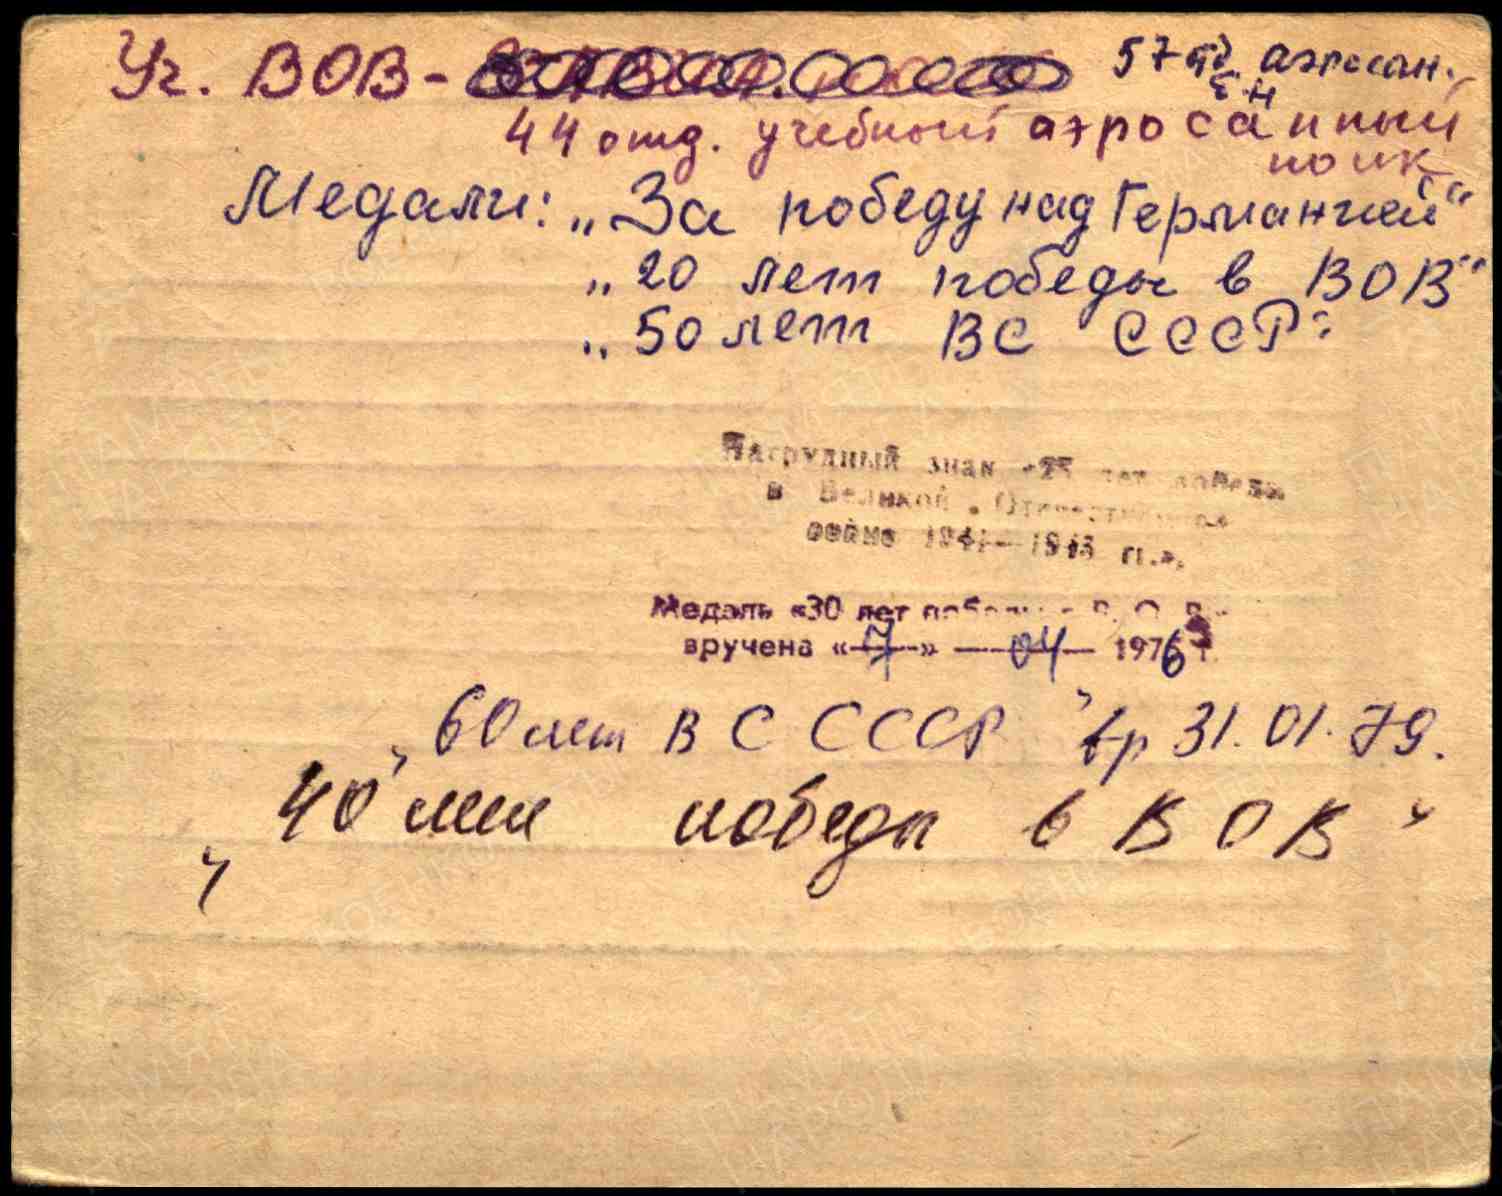 Уч. ВОВ - 57 аэросан.
44 отд. учебный аэросанный
полк
Медали: „За победу над Германией“
„20 лет победы в ВОВ“
„50 лет ВС СССР“
Нагрудный знак «25 лет победы
в Великой Отечественной
войне 1941—1945 гг.».
Медаль «30 лет победы в В. О. В.»
вручена «7» 04 1976 г.
„60 лет ВС СССР" вр 31.01.79.
„40 лет победы в ВОВ"